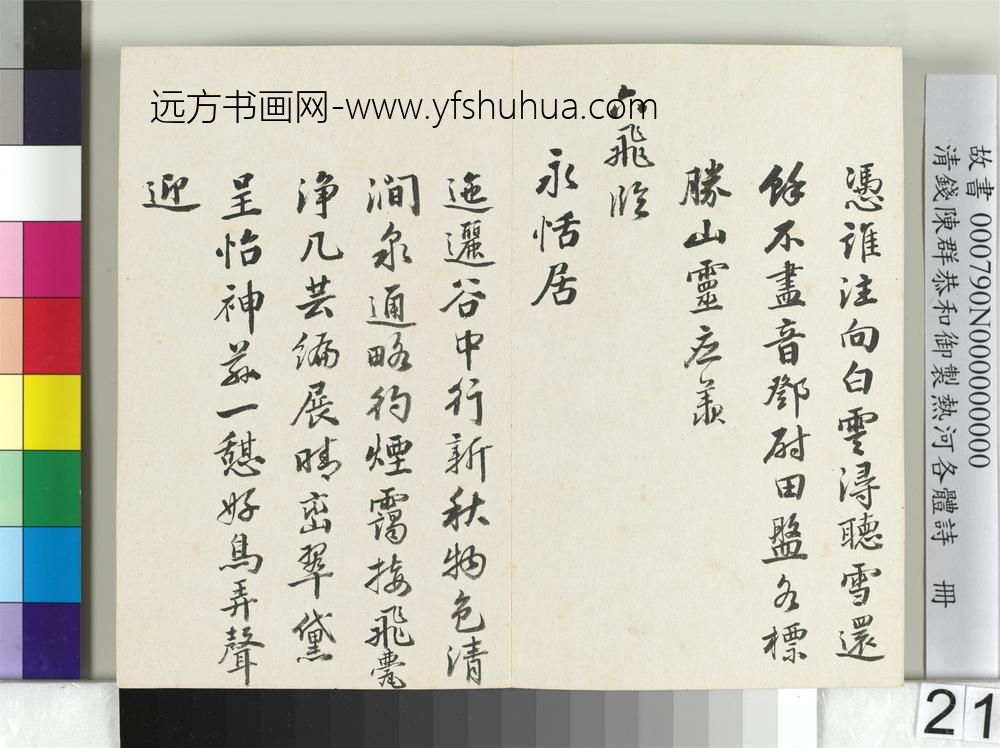 憑誰注向白雲潯聽雪還
餘不盡音鄧尉田盤各標
勝山靈應羨
六飛臨
永恬居
迤邐谷中行新秋物色清
澗泉通略彴煙靄接飛甍
淨几芸編展晴巒翠黛
呈怡神茲一憩好鳥弄聲
迎
远方书画网-www.yfshuhua.com
故書 000790N000000000
清錢陳群恭和御製熱河各體詩 冊
21